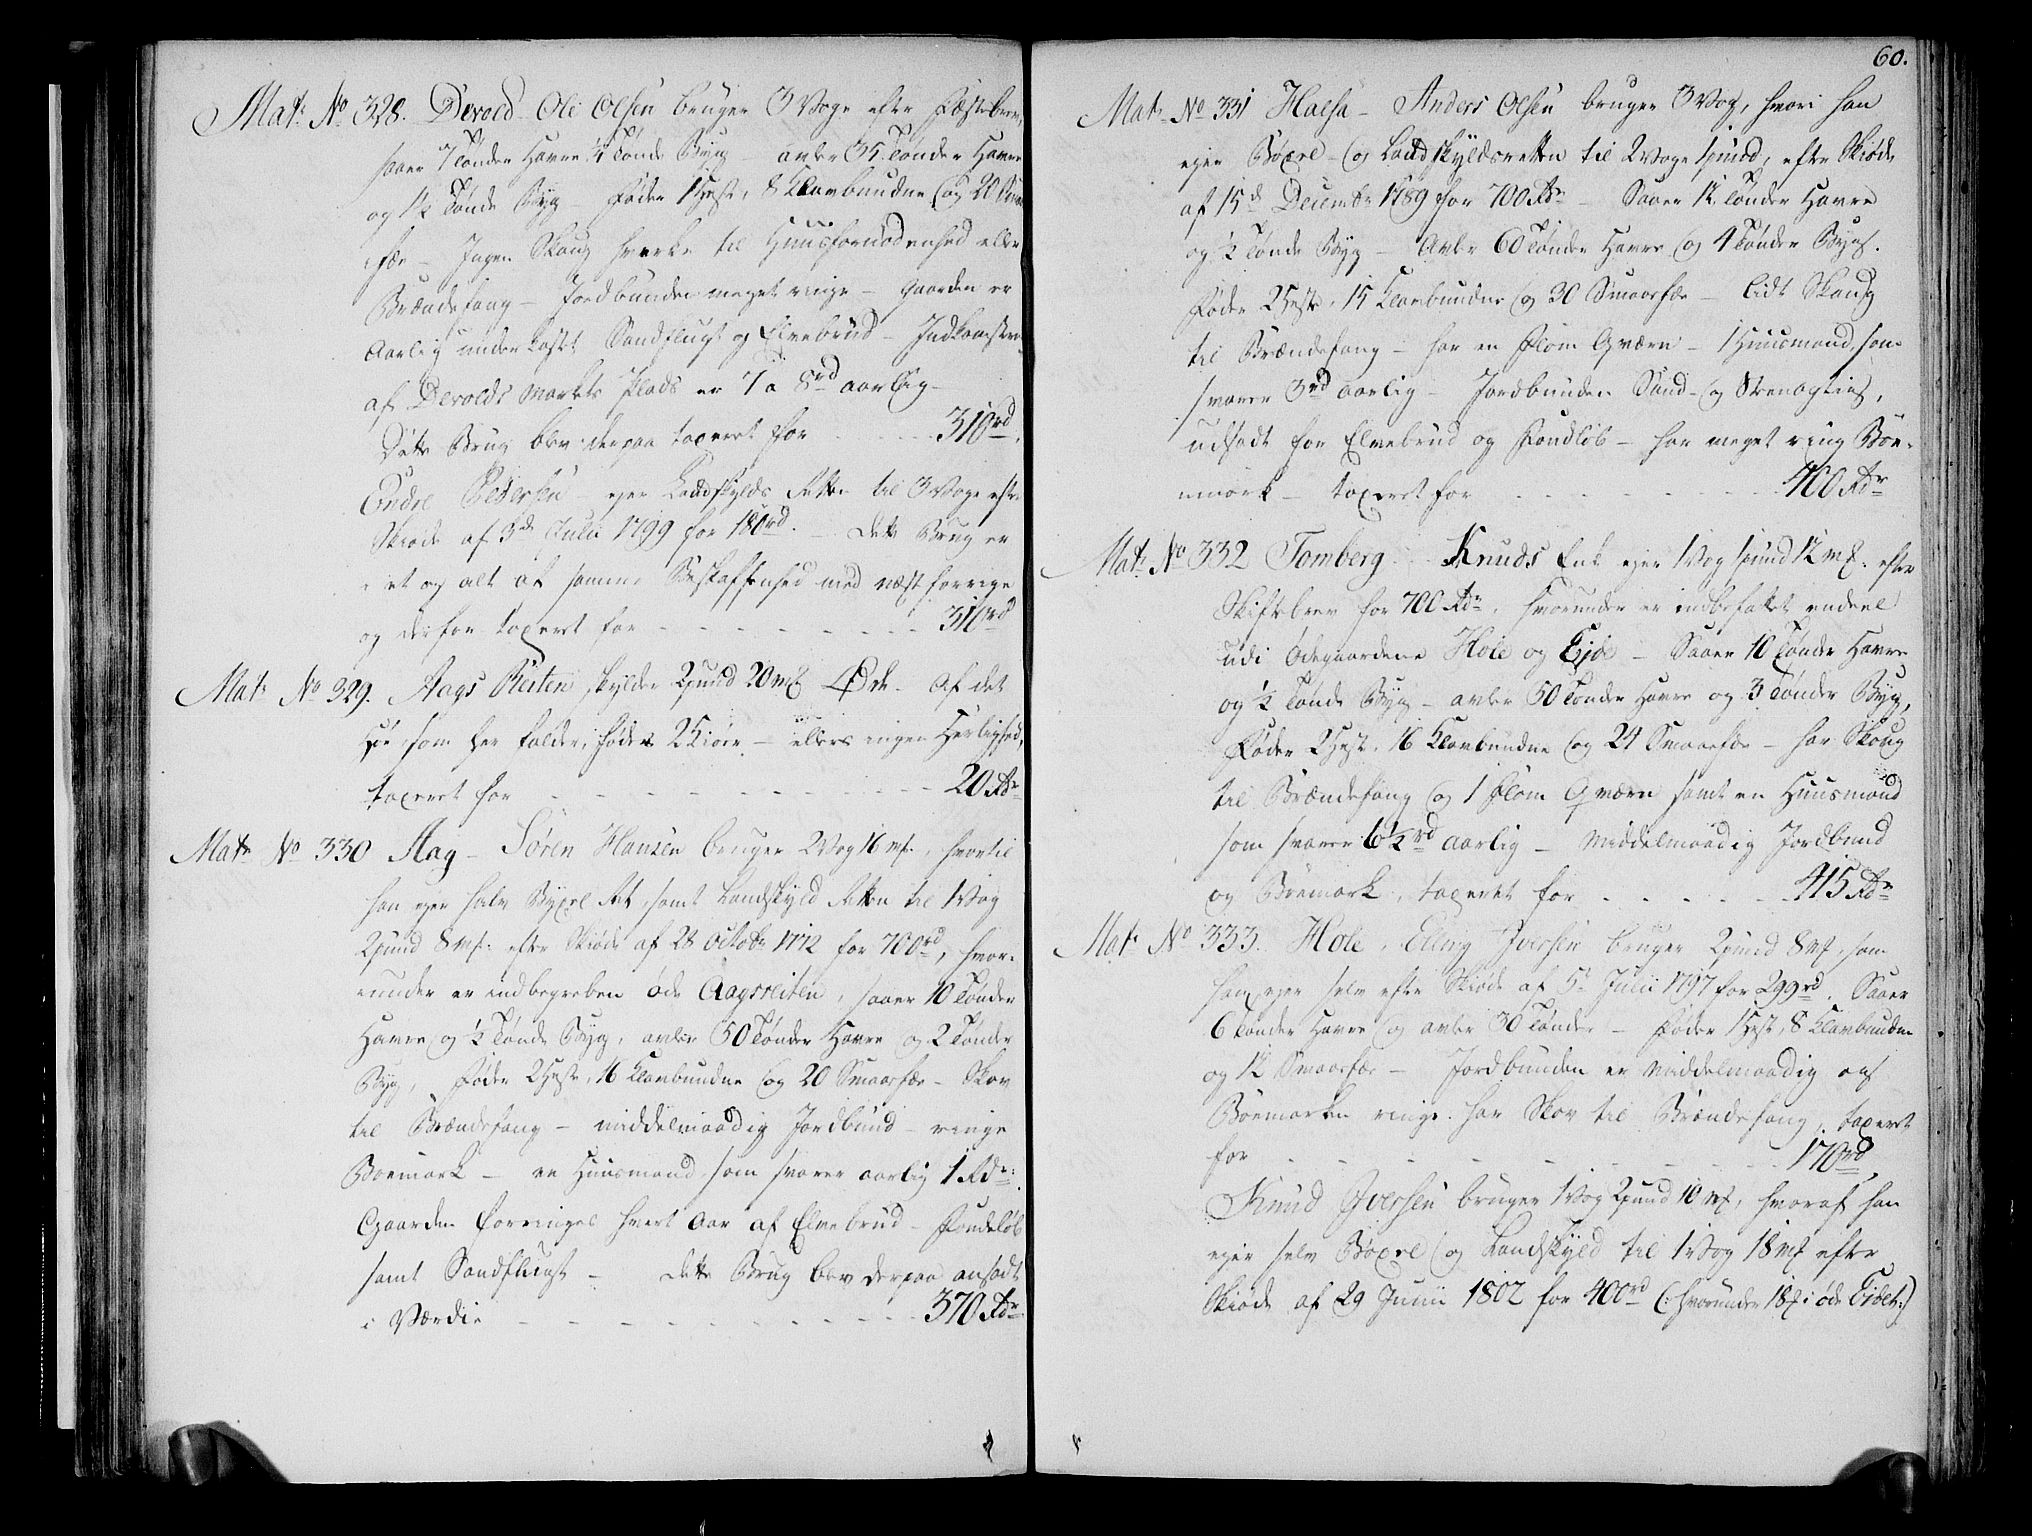 Mat: No 328. Devold - Ole Olsen bruger 3 Voge efter Fæstebrev,
saaer 7 Tønder Havre ¼ Tønde Byg - avler 35 Tønder Havre
og 1½ Tønde Byg - føder 1 Hest, 8 Klavbundne og 20 Smaa
fæe - Ingen Skoug hverken til Huusfornødenhed eller
Brændefang - Jordbunden meget ringe - Gaarden er
Aarlig underkastet Sandflugt og Elvebrud - Indkomsterne
af Devolds Markets Plads er 7 a 8rd aarlig -
Dette Brug blev derpaa taxeret for - - - - 310rd.
Endre Pedersen - ejer Landskylds Retten til 3 Voge efter
Skiøde af 3de Julii 1799 for 180rd. - Dette Brug er
i et og alt af samme Beskaffenhed med næst forrige
og derfor taxeret for - - - - - - - - - 310rd
Mat: No 329. Aags Reiten skylder 2 pund 20 mk Øde. Af det
Høe, som her falder, føder 2 Kiøer - ellers ingen Herlighed,
taxeret for - - - - - - - - - - - - 20 Rdr
Mat: No 330 Aag - Søren Hansen bruger 2 Vog 16 mk., hvortil
han ejer halv Byxel Ret, samt Landskyld Retten til 1 Vog
2 pund 8 mk. efter Skiøde af 28 Octobr 1772 for 700rd, hvor-
under er indbegreben øde Aagsreiten, saaer 10 Tønder
Havre og ½ Tønde Byg, avler 50 Tønder Havre og 2 Tønder
Byg, føder 2 Heste, 16 Klavbundne og 20 Smaafæe - Skov
til Brændefang - middelmaadig Jordbund - ringe
Bøemark - en Huusmand som svarer aarlig 1 Rdr:
Gaarden forringes hvert Aar af Elvebrud - Fondeløb
samt Sandflugt - Dette Brug blev derpaa ansadt
i Værdie - - - - - - - - - - - 370 Rdr
60.
Mat: No 331 Halsa - Anders Olsen bruger 3 Vog, hvori han
ejer Bøxel - og Landskyldsretten til 2 Voge 1 pund, efter Skiøde
af 15d Decembr 1789 for 700 Rdr - Saaer 12 Tønder Havre
og ½ Tønde Byg - Avler 60 Tønder Havre og 4 Tønder Byg.
føder 2 Heste, 15 Klavbundne og 30 Smaafæe - Lidt Skoug
til Brændefang - har en flom Qværn - 1 Huusmand, som
svarer 3rd aarlig - Jordbunden Sand- og Steenagtig,
udsadt for Elvebrud og Fondløb - har meget ring Bøe-
mark - taxeret for - - - - - - - - 400 Rdr
Mat: No 332 Tomberg - Knuds Enke ejer 1 Vog 1 pund 12 mk. efter
Skiftebrev for 700 Rdr, hvorunder er indbefattet endeel
udi Ødegaardene Hole og Ejde - Saaer 10 Tønder Havre
og ½ Tønde Byg - avler 50 Tønder Havre og 3 Tønder Byg,
føder 2 Hest, 16 Klavbundne og 24 Smaafæe - har Skoug
til Brændefang og 1 flom Qværn samt en Huusmand
som svarer 6½rd aarlig - middelmaadig Jordbund
og Bøemark, taxeret for - - - - - 415 Rdr
Mat: No 333. Hole, Elling Iversen bruger 2 pund 8 mk, som
han ejer selv efter Skiøde af 5t Julii 1797 for 299rd. Saaer
6 Tønder Havre og avler 30 Tønder - føder 1 Hest, 8 Klavbundne
og 12 Smaafæe - Jordbunden er middelmaadig og
Bøemarken ringe. har Skov til Brændefang, taxeret
for - - - - - - - - - - 170rd.
Knud Iversen bruger 1 Vog 2 pund 10 mk, hvoraf han
ejer selv Bøxel og Landskyld til 1 Vog 18 mk efter
Skiøde af 29 Junii 1802 for 400rd (: hvorunder 18 mk i øde Eidet:)